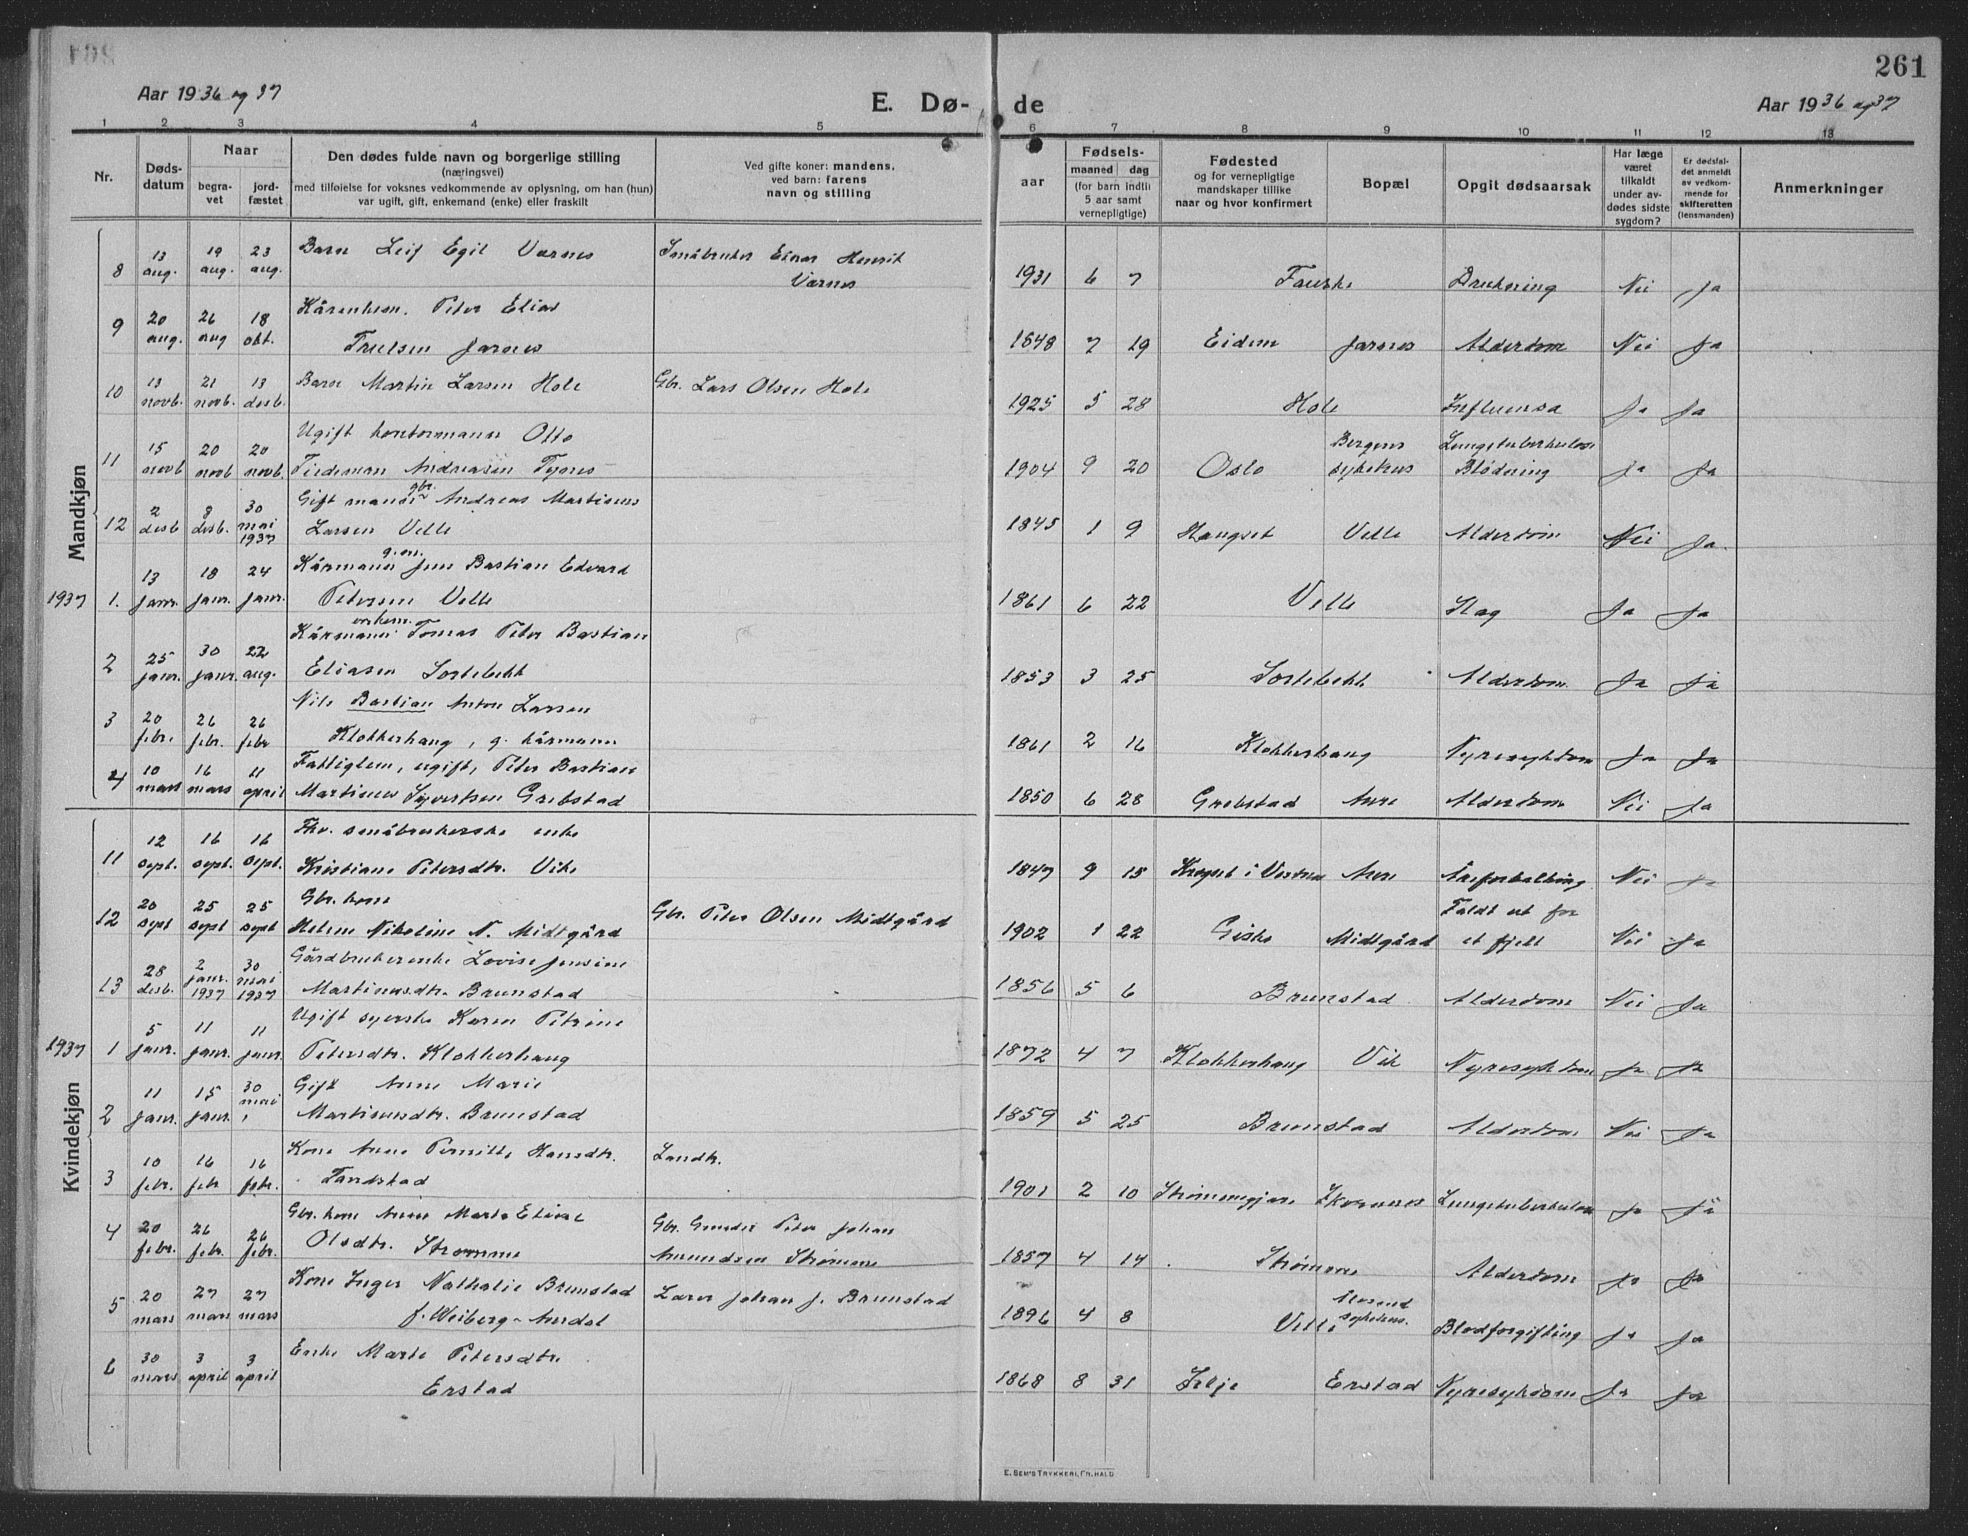 261
Aar 1936 og 37
E. Dø- de
Aar 1936 og 37
1 2 3 4 5 6 7 8 9 10 11 12 13
Nr.
Døds-
datum
Naar
begra-
vet
jord-
fæstet
Den dødes fulde navn og borgerlige stilling
(næringsvei)
med tilføielse for voksnes vedkommende av oplysning, om han (hun)
var ugift, gift, enkemand (enke) eller fraskilt
Ved gifte koner: mandens,
ved barn: farens
navn og stilling
aar
Fødsels-
maaned dag
(for barn indtil
5 aar samt
vernepligtige)
Fødested
og for vernepligtige
mandskaper tillike
naar og hvor konfirmert
Bopæl
Opgit dødsaarsak
Har læge
været
tilkaldt
under av-
dødes sidste
sygdom?
Er dødsfal-
det anmeldt
av vedkom-
mende for
skifteretten
(lensmanden)
Anmerkninger
Mandkjøn
8 13 aug. 19 aug. 23 aug. Barn Leif Egil Varnes Småbruker Einar Henrik
Varnes 1931 6 7 Fauske Drukning Nei Ja
9 20 aug. 26 aug 18 okt. Kårenkem. Peter Elias
Trulsen Jarnes 1848 7 19 Eidem Jarnes Alderdom Nei Ja
10 13 novb. 21 novb. 13 desb. Barn Martin Larsen Hole Gbr. Lars Olsen Hole 1925 5 28 Hole Influensa Ja Ja
11 15 novb 20 novb 20 novb. Ugift kontormann Otto
Tideman Andreasen Tynes 1904 9 20 Oslo Bergens sykehus Lungetuberkulose Blødning Ja Ja
12 2 desb 8 desb. 30 mai 1937 Gift mann gbr. Andreas Martinus
Larsen Velle 1845 1 9 Haugset Velle Alderdom Nei Ja.
1937 1. 13 janr. 18 janr. 24 janr. Kårmann g.m. Jens Bastian Edvard
Petersen Velle 1861 6 22 Velle Slag Ja Ja
2 25 janr. 30 janr. 22 aug. Kårmann enkem. Tomas Peter Bastian
Eliasen Sortebekk 1853 3 25 Sortebekk Alderdom Ja Ja
3 20 febr. 26 febr. 26 febr Nils Bastian Anton Larsen
Klokkerhaug, g. kårmann 1861 2 16 Klokkerhaug Nyresykdom Ja Ja
4 10 mars 16 mars 11 april Fattiglem, ugift, Peter Bastian
Martinus Syvertsen Grebstad 1850 6 28 Grebstad Aure Alderdom Nei Ja
Kvindekjøn
11 12 sept. 16 sept. 16 sept. Fhv. småbrukerske enke
Kristiane Petersdtr. Vik 1847 9 15 Aure Åreforkalkning Nei Ja
12 20 sept 25 sept 25 sept Gbr. kone
Helene Nikoline N. Midtgård Gbr. Peter Olsen Midtgård 1902 1 22 Giske Midtgård Faldt ut for
et fjell Nei Ja
13 28 desb. 2 janr. 1937 30 mai 1937 Gårdbrukerenke Lovise Jensine
Martinusdtr. Brunstad 1856 5 6 Brunstad Alderdom Nei Ja
1937 1 5 janr. 11 janr. 11 janr. Ugift syerske Karen Petrine
Petersdtr. Klokkerhaug 1872 4 7 Klokkerhaug Vik Nyresykdom Ja Ja
2 11 janr. 15 janr. 30 mai Gift Anne Marie
Martinusdtr. Brunstad 1859 5 25 Brunstad Alderdom Nei Ja
3 10 febr. 16 febr 16 febr. Kone Anne Pernille Hansdtr.
Tandstad 1901 2 10 Lungetuberkulose Ja Ja
4 20 febr. 26 febr. 26 febr. Gbr. kone Anne Marte Elise
Olsdtr. Strømme Gbr. Peter Johan
Amundsen Strømme 1857 4 14 Strømme Alderdom Ja Ja
5 20 mars 27 mars 27 mars Kone Inger Nathalie Brunstad
f. Weiberg-Aurdal Lærer Johan J. Brunstad 1896 4 8 Velle Ålesund sykehus. Blodforgiftning Ja Ja
6 30 mars 3 april 3 april Enke Marte Petersdtr.
Erstad 1868 8 31 Selje Erstad Nyresykdom Ja Ja
E. SEM'S TRYKKERI, FR. HALD